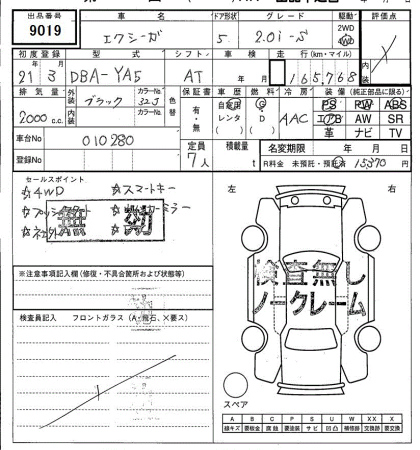 出品番号 車名 ドア形状 グレード 駆動 評価点
9019 エクシーガ 5 2.0i-S 2WD 4WD
初度登録 型式 シフト 車検 走行(km・マイル)
21 3 DBA-YA5 AT 年 月 165,768
排気量 外装 カラーNo. 内装 カラーNo. 色替 保証書 車歴 燃料 冷房 装備(純正部品に限る)
2000 c.c. ブラック 32J 有・無 自家用 レンタ G D AAC PS PW ABS
エアB AW SR
革 ナビ TV
車台No 010280 定員 7人 積載量 t 名変期限 年 月 日
登録No R料金 未預託・預託済 15,370 円
セールスポイント 左 右
☆4WD ☆スマートキー
無効
検査無し
ノークレーム
※注意事項記入欄(修復・不具合箇所および状態等)
検査員記入 フロントガラス(A・飛石、X要ス)
スペア
A B C P S U W X XX X
線キズ 要板金 腐蝕 要塗装 サビ 凹凸 補修跡 交換跡 要交換